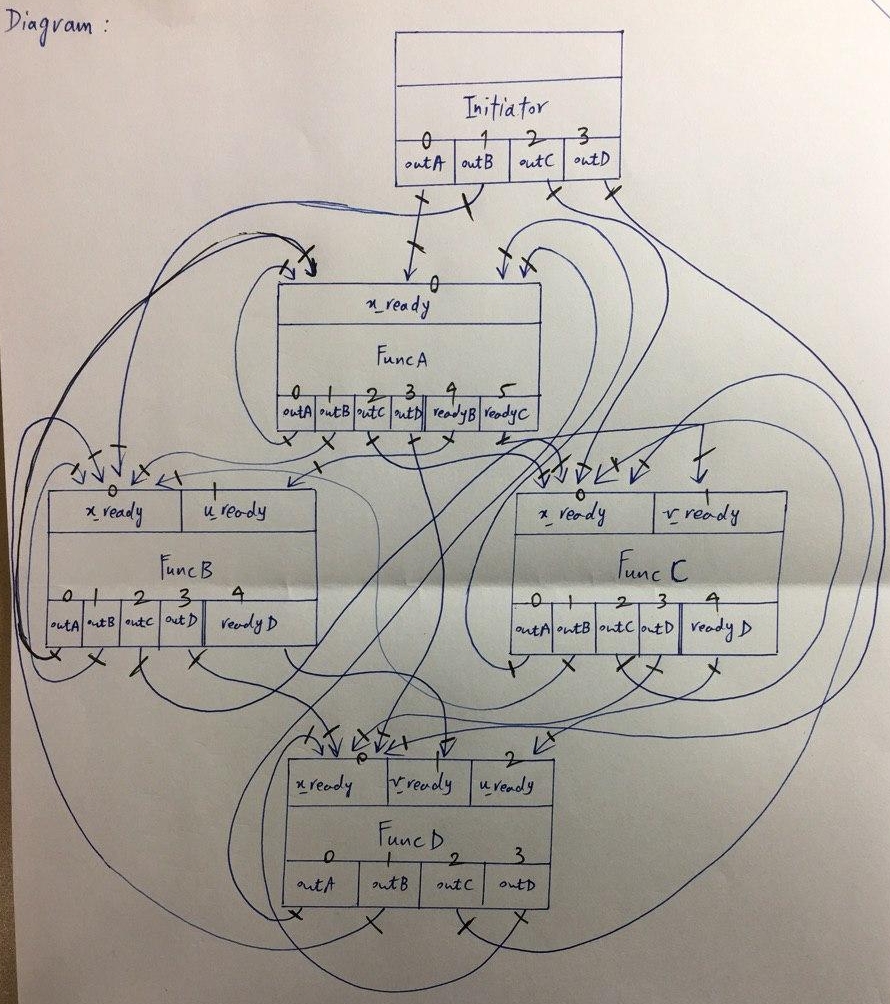 Diagram :
Initiator
0 1 2 3
outA outB outC outD
0
x_ready
FuncA
0 1 2 3 4 5
outA outB outC outD readyB readyC
0 1
x_ready u_ready
FuncB
0 1 2 3 4
outA outB outC outD readyD
0 1
x_ready v_ready
FuncC
0 1 2 3 4
outA outB outC outD readyD
0 1 2
x_ready v_ready u_ready
FuncD
0 1 2 3
outA outB outC outD